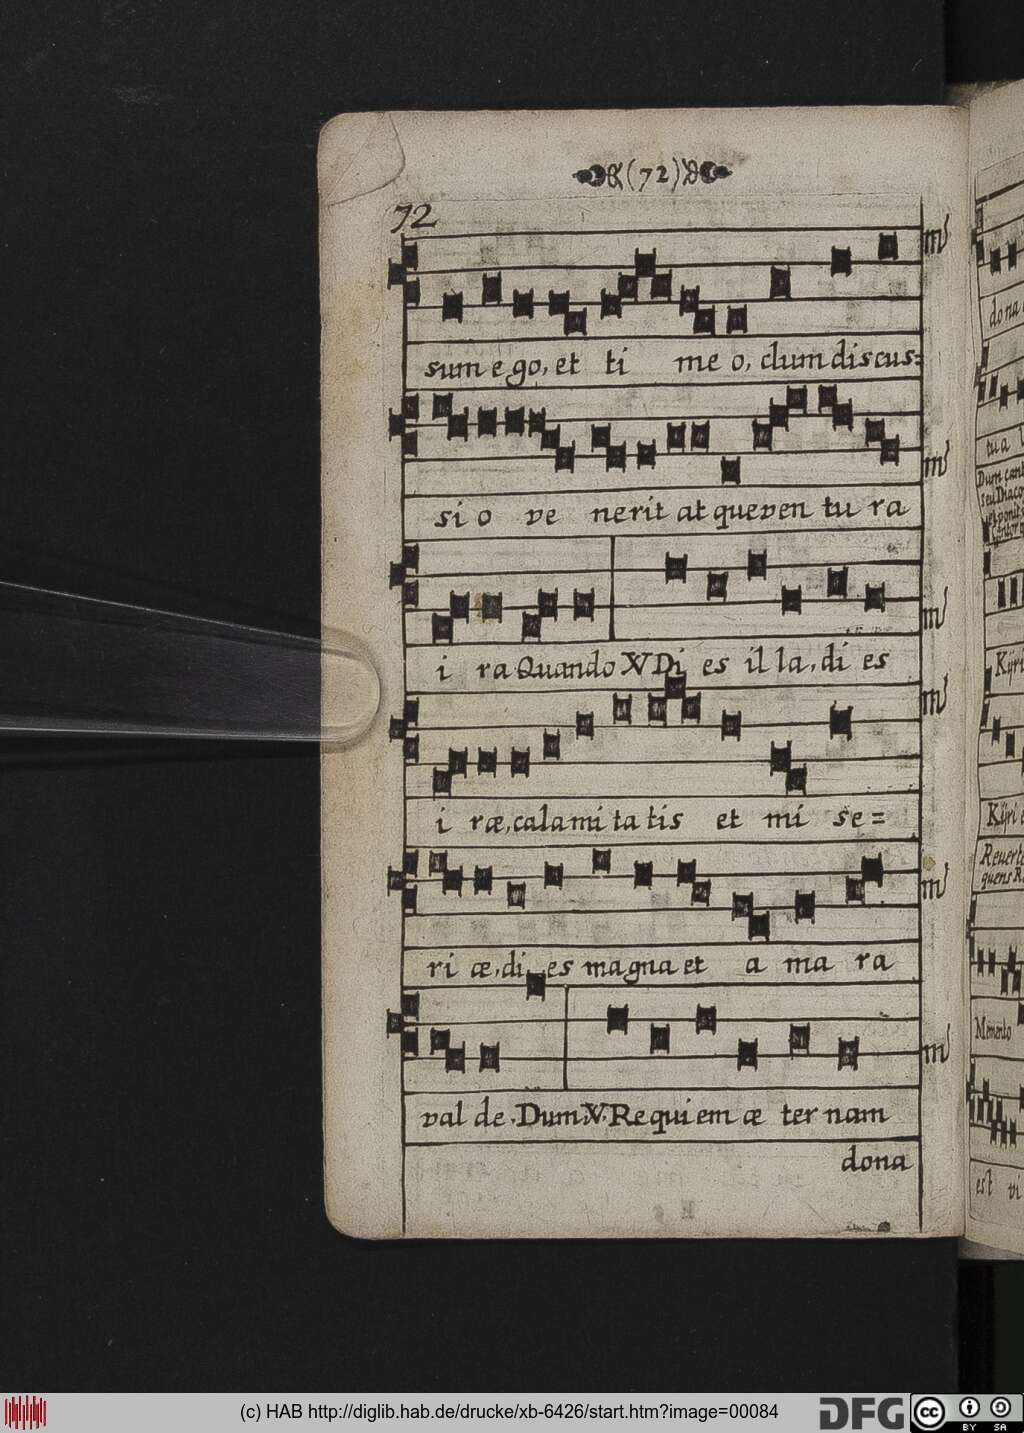 (72)
72
sum e go, et ti me o, dum discus=
sio ve nerit atqueven tu ra
i ra. Quando V Di es il la, di es
i ræ, calami ta tis et mi se=
ri æ, di es magna et a ma ra
val de. Dum. V. Requiem æ ter nam
dona
dona
tu a
Dum can
seu Diaco
Kÿri
Kÿri e
Reverte
quens R
Memento
est vi
(c) HAB http://diglib.hab.de/drucke/xb-6426/start.htm?image=00084
DFG
cc
BY SA